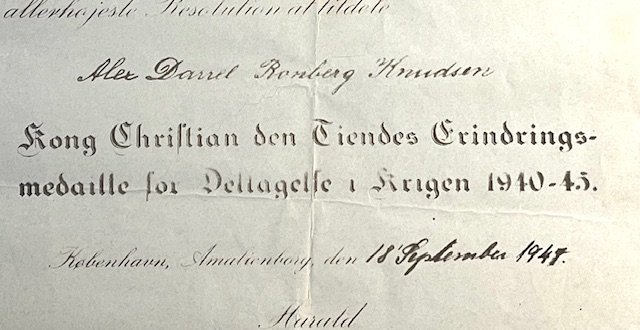 allerhøjeste Resolution at tildele
Alex Darrel Ronberg Knudsen
Kong Christian den Tiendes Erindrings-
medaille for Deltagelse i Krigen 1940-45.
København, Amalienborg, den 18' September 1947.
Harald